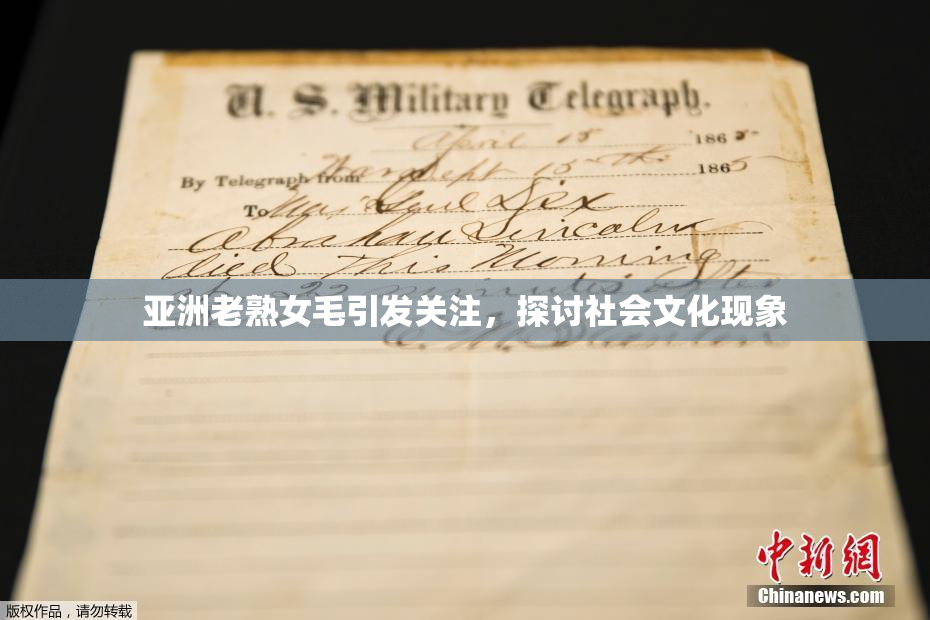 U. S. Military Telegraph.
April 15 1865
By Telegraph from War Dept 15th 1865
To Maj Genl Dix
Abraham Lincoln
died This Morning
22 minutes after
亚洲老熟女毛引发关注，探讨社会文化现象
中新网
Chinanews.com
版权作品，请勿转载